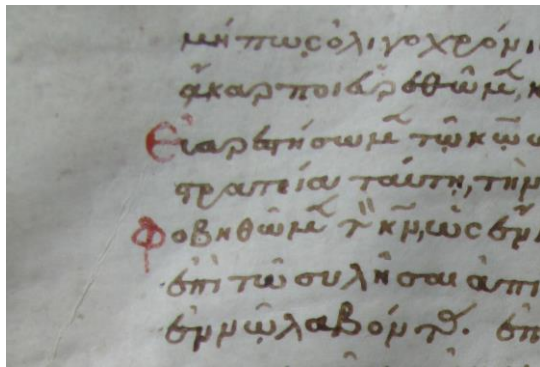 μήπως ὀλιγοχρόνι
ἄκαρποι εὑρεθῶμεν, κ
Εὐαρεστήσωμεν τῷ κῷ ὡ
στρατεία ταύτη, τὴν
Φοβηθῶμεν τὸν κν, ὡς
ἐπὶ τῶ συλῆσαι ἀπι
ἐν νῶ λαβόντων. ἐπ